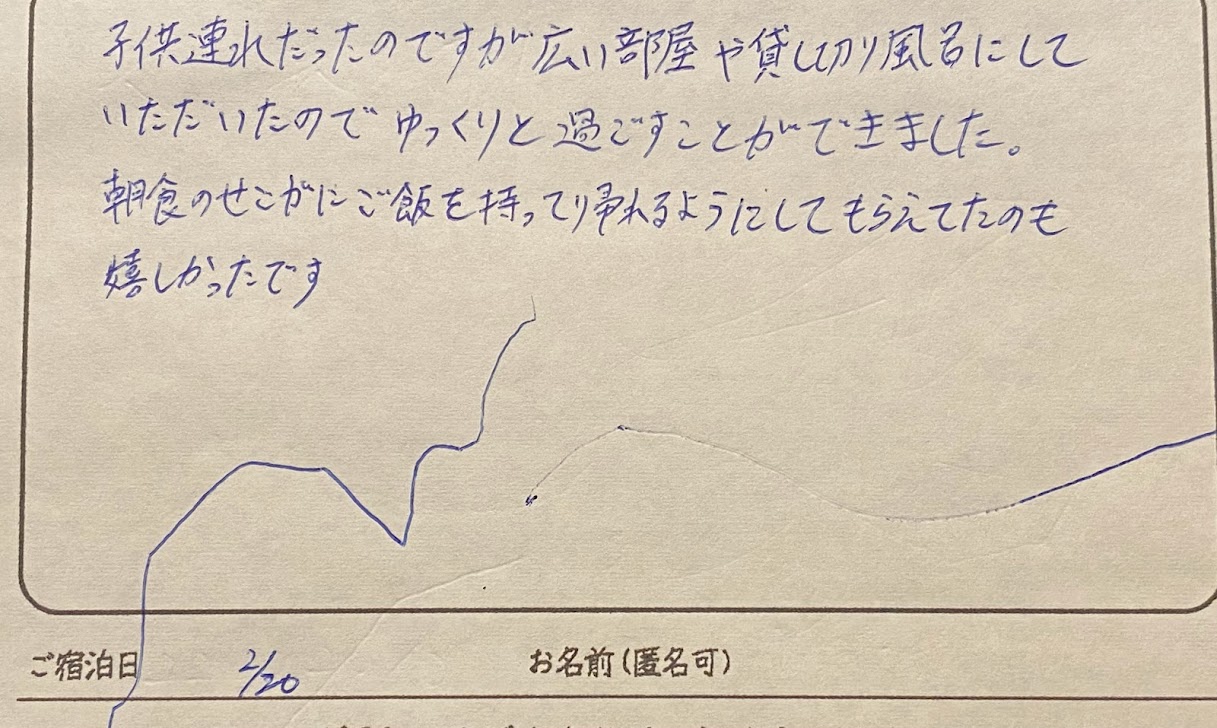 子供連れだったのですが広い部屋や貸し切り風呂にして
いただいたのでゆっくりと過ごすことができました。
朝食のせこがにご飯を持って帰れるようにしてもらえてたのも
嬉しかったです
ご宿泊日 2/20 お名前(匿名可)